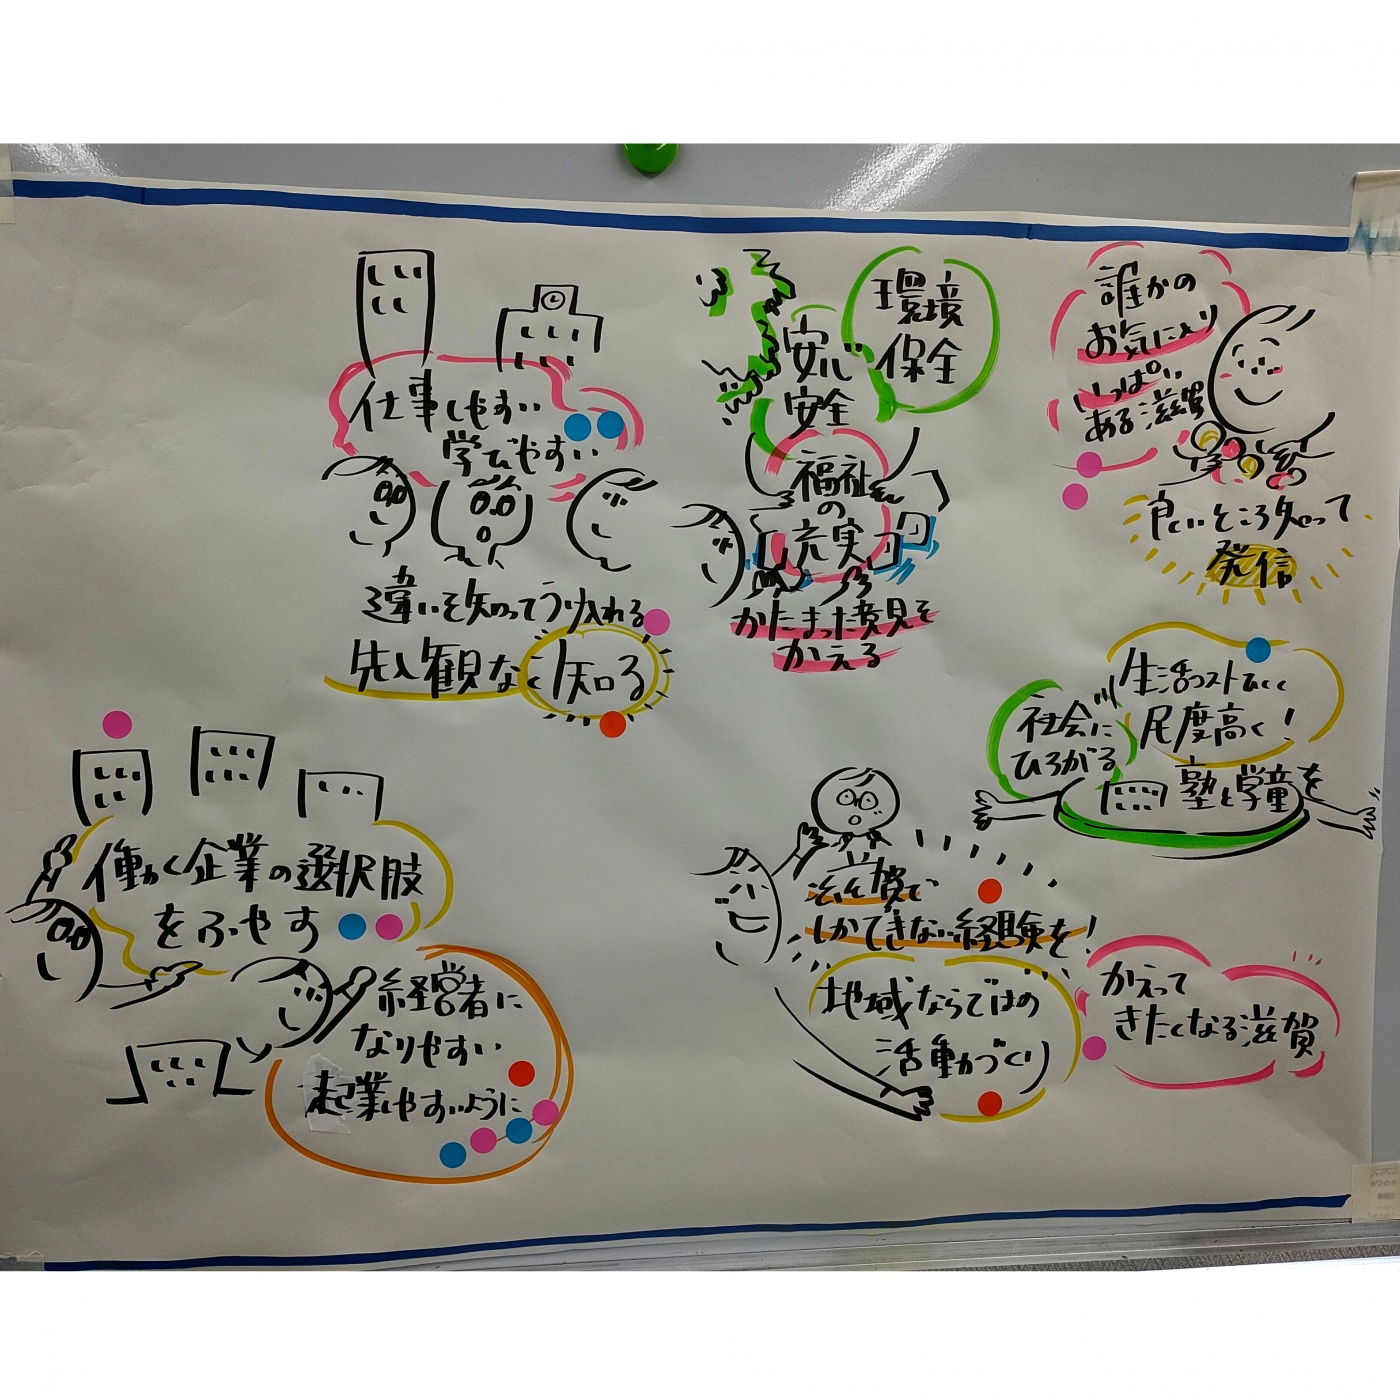 仕事しやすい
学びやすい
違いを知ってうけ入れる
先入観なく知る
安心
安全
環境
保全
福祉
の
充実
かたまった意見を
かえる
誰かの
お気に入り
いっぱい
ある滋賀
良いところ知って
発信
生活コストひくく
尺度高く！
社会に
ひろがる
塾と学童を
働く企業の選択肢
をふやす
経営者に
なりやすい
起業しやすいように
滋賀で
しかできない経験を！
地域ならではの
活動づくり
かえって
きたくなる滋賀